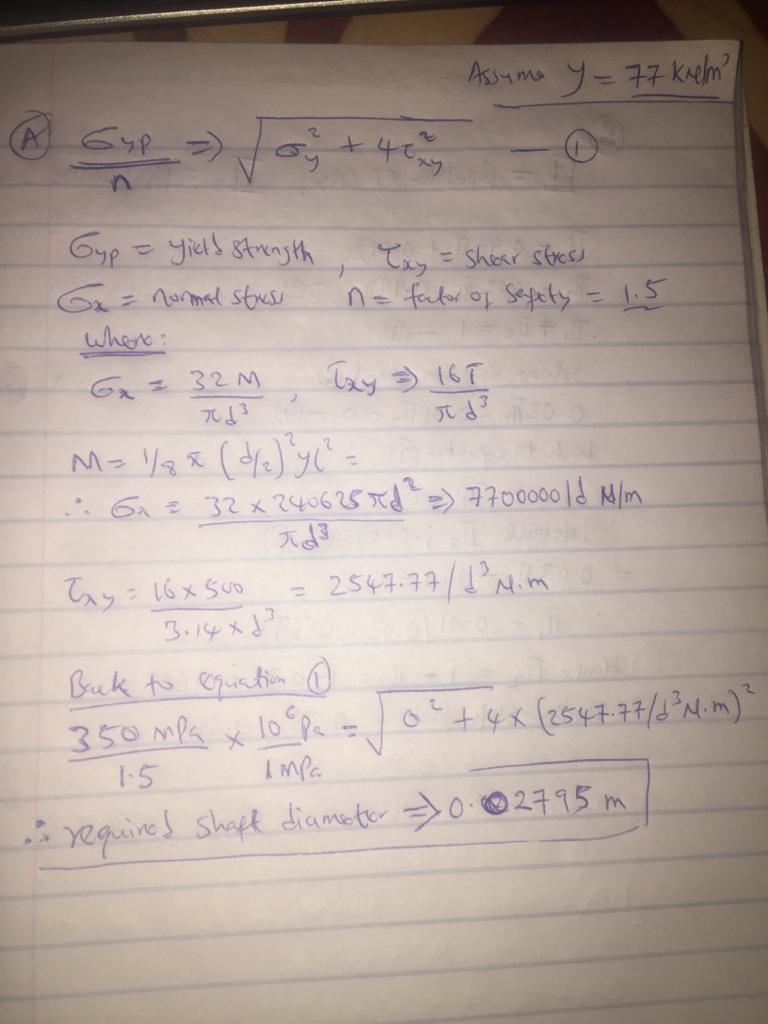 Assume y = 77 KN/m³
(A) σyp/n => √(σy² + 4τ²xy) — ①
σyp = yield strength, τxy = shear stress
σx = normal stress n = factor of safety = 1.5
where:
σx = 32M/πd³, τxy => 16T/πd³
M = 1/8 π (d/2)² yl² =
∴ σx = 32 × 240625πd²/πd³ => 7700000/d N/m
τxy = 16 × 500/3.14 × d³ = 2547.77/d³ N.m
Back to equation ①
350 mPa/1.5 × 10⁶Pa/1mPa = √(0² + 4 × (2547.77/d³ N.m)²
∴ required shaft diameter => 0.02795 m